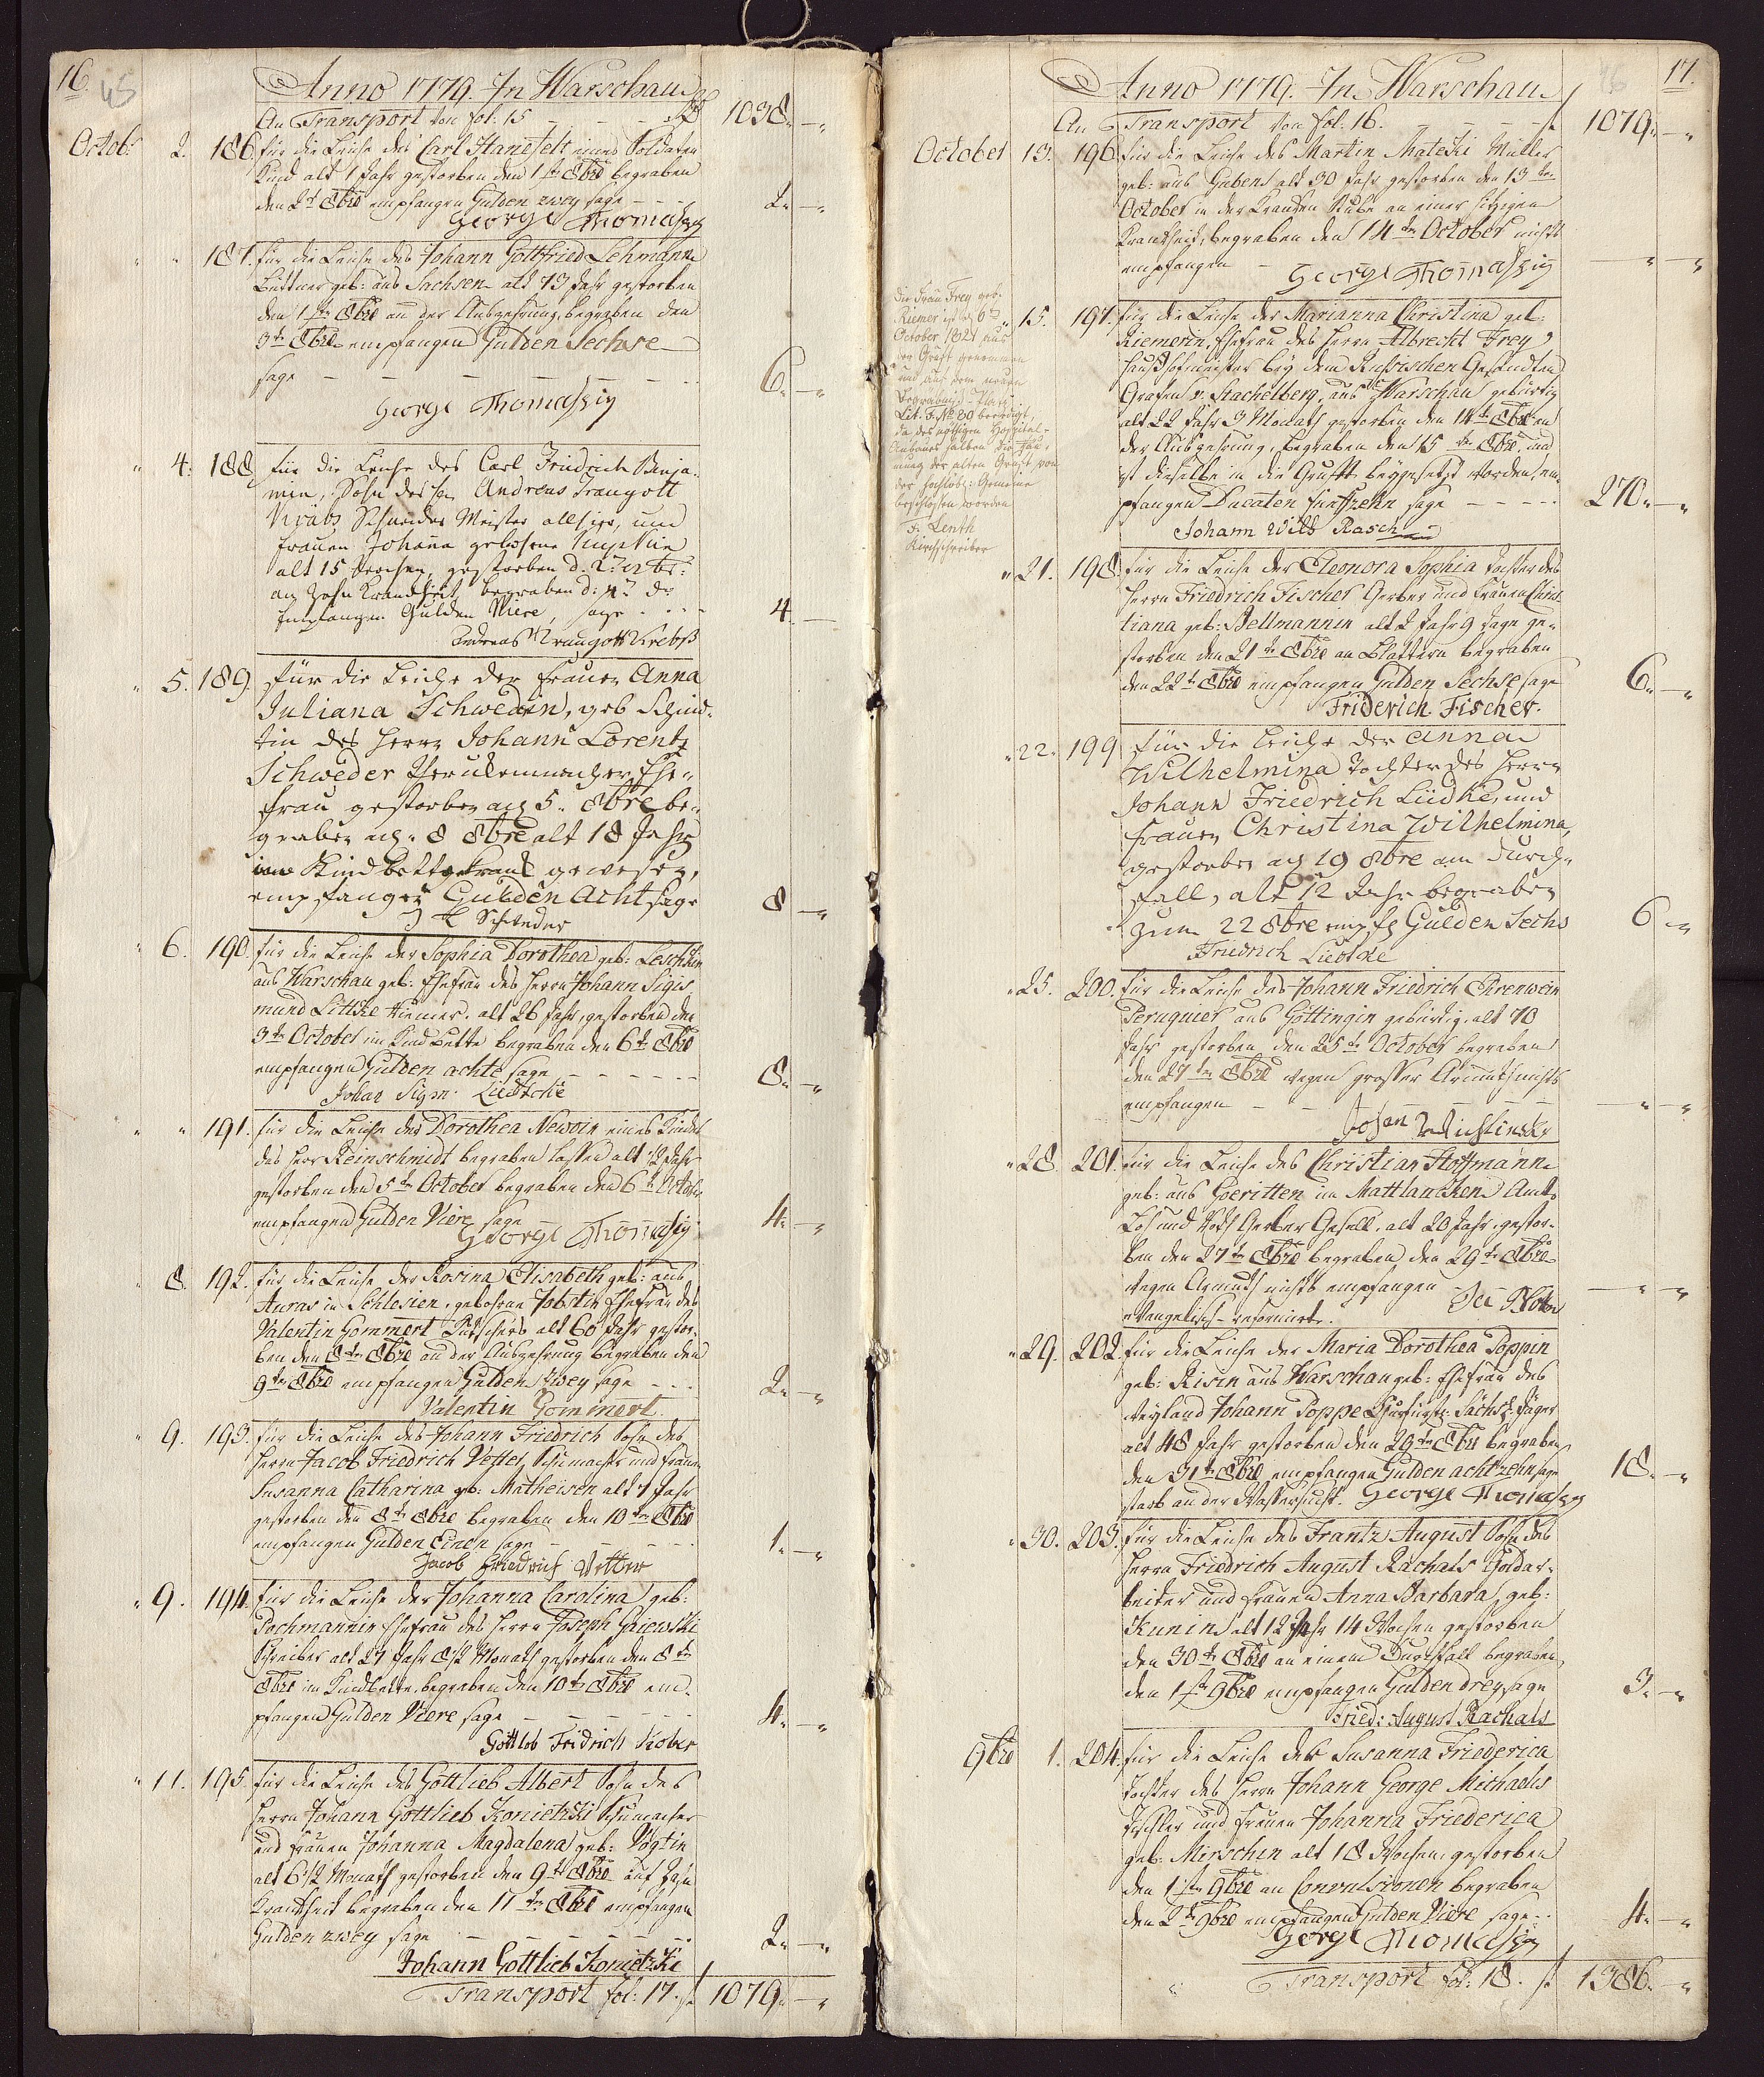 16.
45
Anno 1779. In Warschau
An Transport von fol: 15 - - - 1038.
Octob: 2. 186. für die Leiche des Carl Hanefelt eines Soldaten
Kind alt 1 Jahr gestorben den 1 ten 8bre begraben
den 2t 8bre empfangen Gulden zwey sage - - - 2.
George Thomaszig
" " 187. für die Leiche des Johann Gottfried Lehmann
Büttner geb: aus Sachsen alt 73 Jahr gestorben
den 1 ten 8bre an der Auszehrung, begraben den
3t 8bre empfangen Gulden Sechse
sage - - - - - - 6.
George Thomaszig
" 4. 188. für die Leiche des Carl Friedrich Benja-
min, Sohn des Hen Andreas Traugott
Krebs Schneider Meister allhier, und
frauen Johana gebohrne
alt 15 Wochen, gestorben d. 2
an Zahn Kranckheit, begraben d: 4t do
Empfangen Gulden Viere, sage - - - 4.
Andreas Traugott Krebß
" 5. 189. für die Leiche der Frauen Anna
Juliana Schwedern, geb Schmid-
tin des Herrn Johann Lorentz
Schweder Peruckenmacher Ehe-
frau gestorben den 5. 8bre be-
graben den 8 8bre alt 18 Jahr
im Kindbette krank gewesen,
empfangen Gulden Acht sage 8
J L Schweder
" 6. 190. für die Leiche der Sophia Dorothea geb: Leschkin
aus Warschau geb: Ehefrau des Herrn Johann Sigis
mund Littke Riemer. alt 26 Jahr, gestorben den
3ten October im Kindbette begraben den 6t 8bre
empfangen Gulden achte sage - - - - - - 8.
Johan Sigm: Liedtcke
" " 191. für die Leiche der Dorothea Newoin eines Kindes
das Herr Reinschmidt begraben lassen alt 1/2 Jahr
gestorben den 5 ten October begraben den 6t Octob:
empfangen Gulden Viere sage 4.
George Thomaszig
" 8. 192. für die Leiche der Rosina Elisabeth geb: aus
Auras in Schlesien, gebohrne Jobstin Ehefrau des
Valentin Gommert Kutschers alt 60 Jahr gestor-
ben den 8ten 8bre an der Auszehrung begraben den
9ten 8bre empfangen Gulden Zwey sage - - - 2.
Valentin Gommert
" 9. 193. für die Leiche des Johann Friedrich Sohn des
Herrn Jacob Friedrich Vetter Schumacher und Frauen
Susanna Catharina geb: Matheisen alt 7 Jahr
gestorben den 8t 8bre begraben den 10 ten 8bre
empfangen Gulden Einen sage - - - - 1.
Jacob Friedrich Vetter
" 9. 194. für die Leiche der Johanna Carolina geb:
Pochmannin Ehefrau des Herrn Joseph Gaiewski
Schreiber alt 27 Jahr 8 1/2 Monath gestorben den 8ten
8bre im Kindbette, begraben den 10t 8bre em-
pfangen Gulden Viere sage - - - 4.
Gottlob Fridrich Kober
" 11. 195. für die Leiche des Gottlieb Albert Sohn des
Herrn Johann Gottlieb Konietzki Schumacher
und Frauen Johanna Magdalena geb: Vogtin
alt 6 1/2 Monath gestorben den 9t 8bre auf Zahn
Krankheit begraben den 11 ten 8bre empfangen
Gulden zwey sage - - - - - 2.
Johann Gottlieb Konietzki
Transport fol: 17. 1079.
17.
46
Anno 1779. In Warschau
An Transport von fol: 16. - - - 1079.
October 13. 196. für die Leiche des Martin Mateki Müller
geb: aus Guben alt 30 Jahr gestorben den 13ten
October in der Kranken Stube an einer hitzigen
Krankheit, begraben den 14ten October nichts
empfangen -
George Thomaszig
Die Frau Frey geb.
Riemer ist d 6 ten
October 1821 aus
der Gruft genommen
und auf dem neuen
Begräbniß-Platz
Lit. F. No 80 beerdigt,
da des nöthigen Hospital-
Anbaues halben die
der alten Gruft von
der hochlöbl: Gemeine
beschlossen worden
F. Lenth
Kirchschreiber
" 15. 197. für die Leiche der Marianna Christina geb:
Riemerin, Ehefrau des Herrn Albrecht Frey
Haußhofmeister bey dem Rußischen Gesandten
Grafen v. Stachelberg, aus Warschau gebürtig
alt 22 Jahr 3 Monath gestorben den 14t 8bre an
der Auszehrung, begraben den 15 ten 8bre und
ist dieselbe in die Grufft beygesetzt worden, em-
pfangen Ducaten funffzehn sage - - - - 270.
Johann Wilh Rasch
" 21. 198. für die Leiche der Eleonora Sophia Tochter des
Herrn Friedrich Fischer Gerber und Frauen Chris
tiana geb: Bellmannin alt 2 Jahr 9 Tage ge-
storben den 21 ten 8bre an Blattern begraben
den 22t 8bre empfangen Gulden Sechse sage 6.
Friderich Fischer.
" 22. 199. für die Leiche der Anna
Wilhelmina Tochter des Herrn
Johann Friedrich Lüdke, und
frauen Christina Wilhelmina,
gestorben den 19 8bre am Durch-
fall, alt 12 Jahr begraben
zum 22 8bre empf Gulden Sechs 6
Friedrich Luedke
" 25. 200. für die Leiche des Johann Friedrich Ehrenwein
Peruquier aus Göttingin gebürtig, alt 70
Jahr gestorben den 25te October begraben
den 27 ten 8bre wegen grosser Armuth nichts
empfangen - - - -
Johan
" 28. 201. für die Leiche des Christian Hoffmann
geb: aus Goeritten im Mattlancken Amt,
Loh und Roth Gerber Gesell. alt 20 Jahr, gestor-
ben den 27 ten 8bre begraben den 29 te 8bre
wegen Armuth nichts empfangen
evangelisch-reformirt.
" 29. 202. für die Leiche der Maria Dorothea Poppin
geb: Risin aus Warschau geb: Ehefrau des
weyland Johann Poppe Churfürstl: Sächs: Jäger
alt 48 Jahr gestorben den 29ten 8bre begraben
den 31t 8bre empfangen Gulden achtzehn sage 18.
starb an der Wassersucht. George Thomaszig
" 30. 203. für die Leiche des Frantz August Sohn des
Herrn Friedrich August Rachals Goldar-
beiter und Frauen Anna Barbara, geb:
Kunin, alt 12 Jahr 14 Wochen gestorben
den 30t 8bre an einem Durchfall begraben,
den 1 ten 9bre empfangen Gulden drey sage 3.
Fried: August Rachals
9bre 1. 204. für die Leiche der Susanna Friederica
Tochter des Herrn Johann George Michaelis
Tischler und Frauen Johanna Friederica
geb: Mirschin alt 18 Wochen gestorben
den 1 ten 9bre an Convulsionen begraben
den 2ten 9bre empfangen Gulden Viere sage - - 4.
George Thomaszig
Transport fol: 18. 1386.